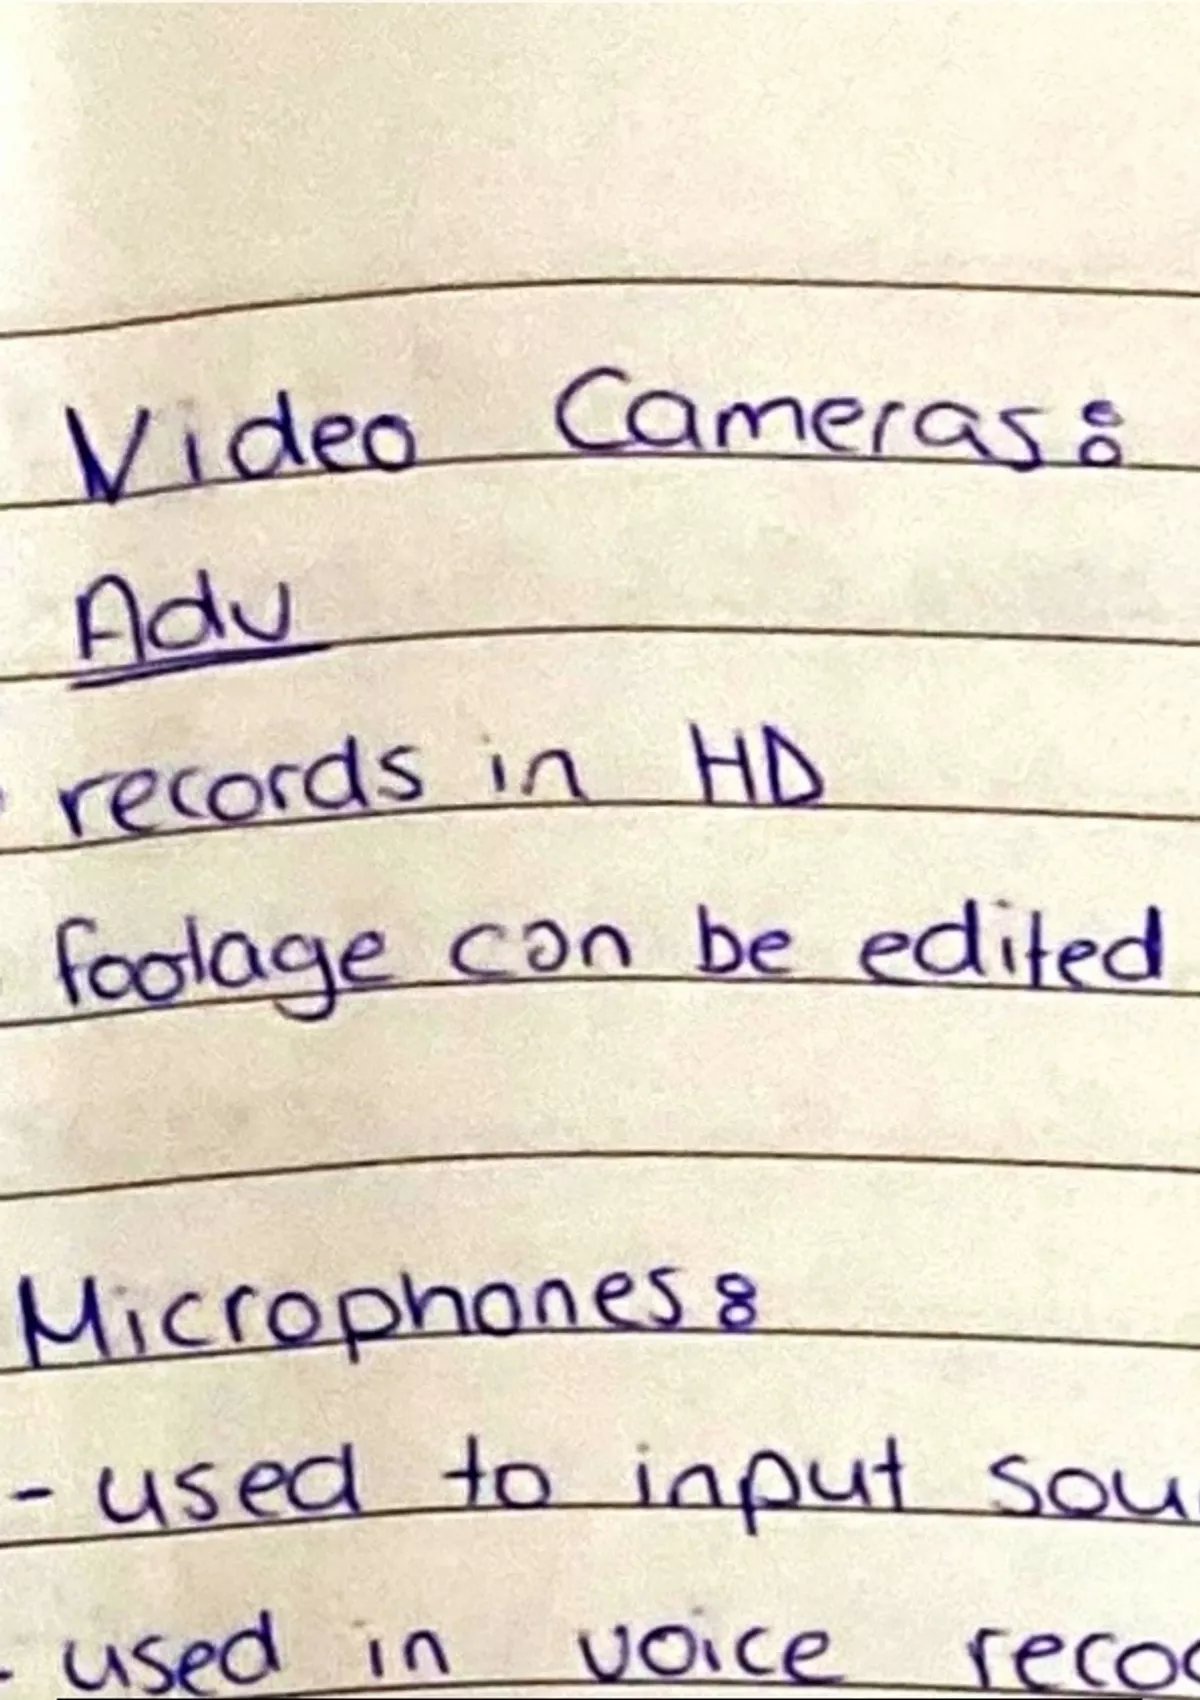 Video Cameras:
Adv
- records in HD
- footage can be edited
Microphones:
- used to input sou
- used in voice reco